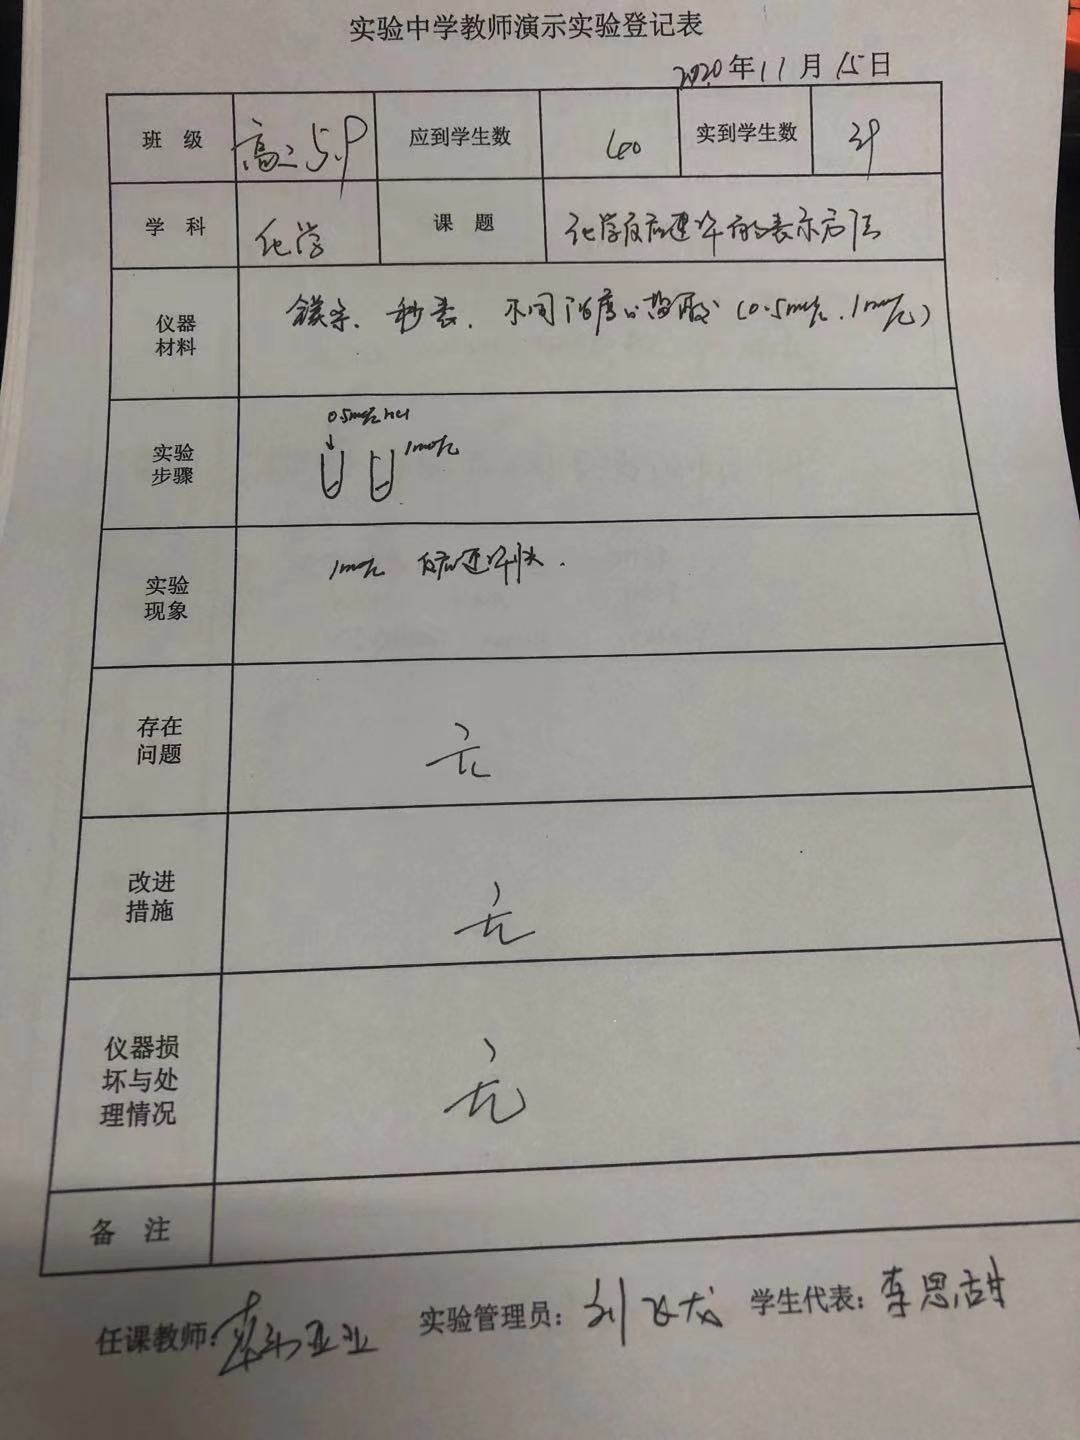 实验中学教师演示实验登记表
2020年11月15日
班 级 高二5.9 应到学生数 60 实到学生数
学 科 化学 课 题 化学反应速率的表示方法
仪器材料 镁条、秒表、不同浓度的盐酸(0.5mol/L、1mol/L)
0.5mol/L HCl
实验步骤 1mol/L
实验现象 1mol/L 反应速率快.
存在问题 无
改进措施 无
仪器损坏与处理情况 无
备 注
任课教师: 实验管理员:刘飞龙 学生代表:李思甜